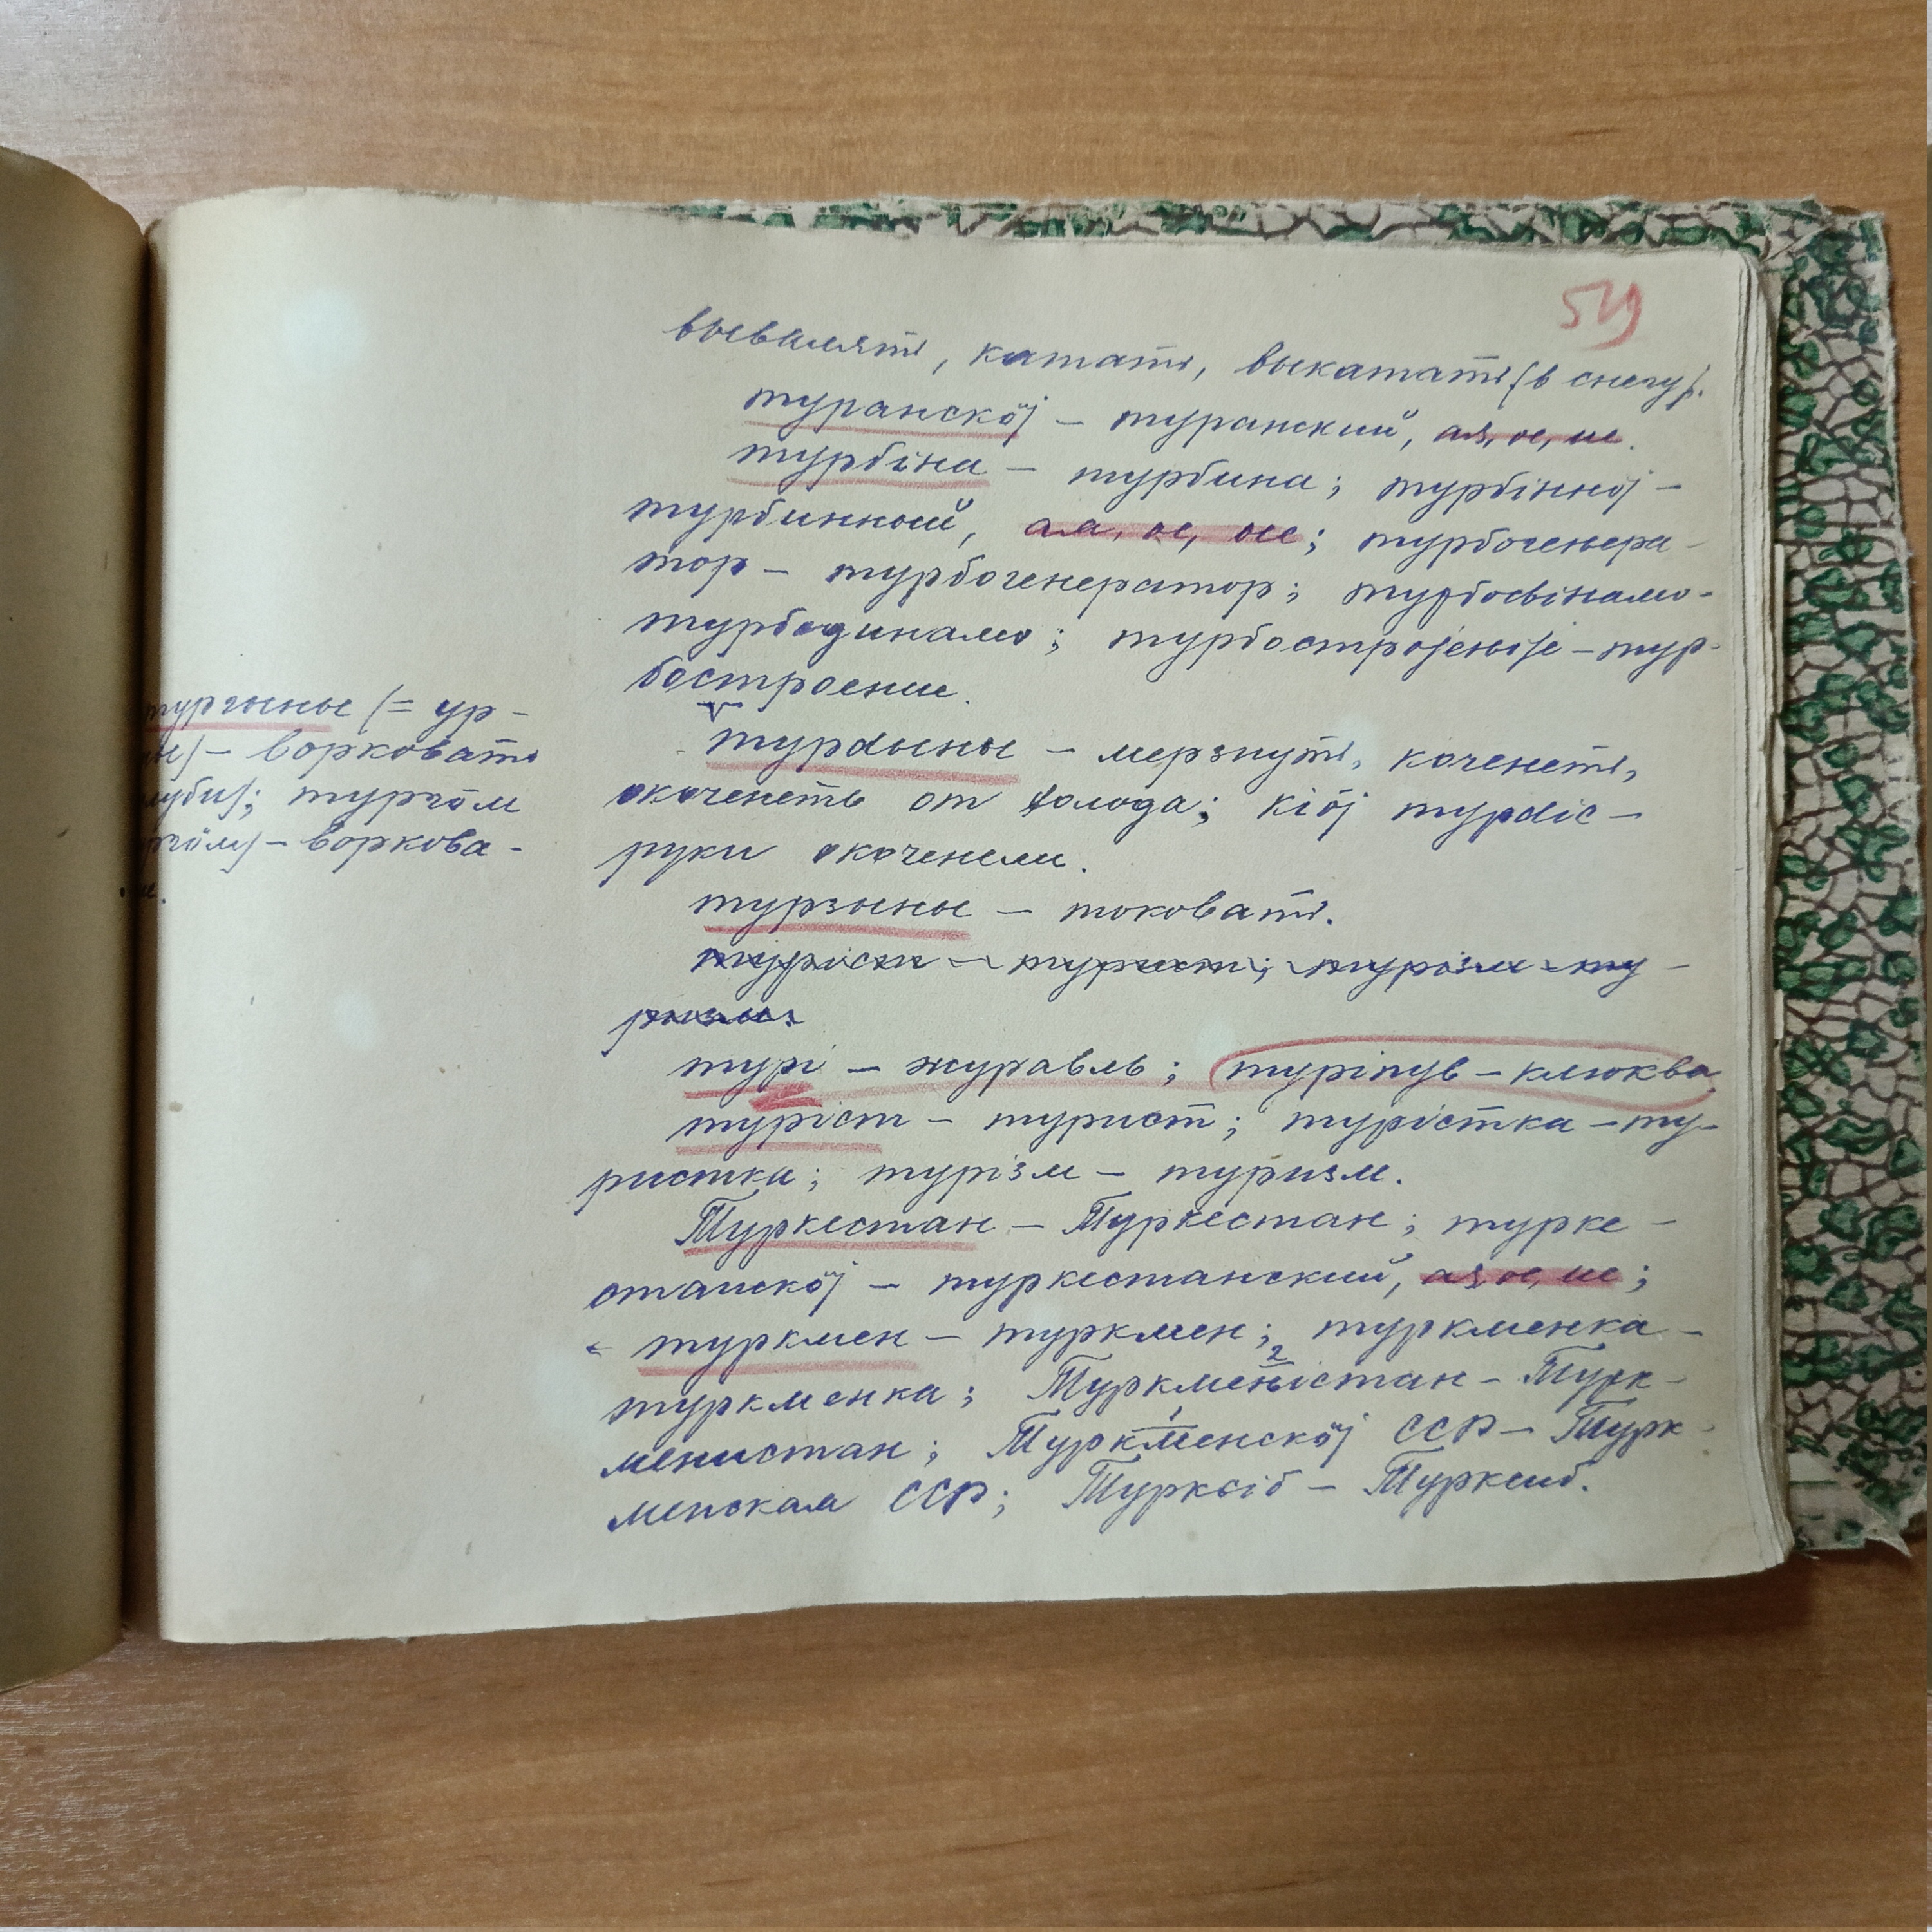 529
вывалять, катать, выкатать (в снегу).
туранскӧј – туранский, ая, ое, ие.
турбіна – турбина; турбіннӧј –
турбинный, ая, ое, ые; турбогенера-
тор – турбогенератор; турбоԁінамо –
турбодинамо; турбостројеԋԋіјӧ – тур-
бостроение.
турԁыны – мерзнуть, коченеть,
окоченеть от холода; кіӧј турԁіс –
руки окоченели.
турзыны – токовать.
туріст – турист; турізм – ту-
ризм.
турі – журавль; туріпув – клюква
туріст – турист; турістка – ту-
ристка; турізм – туризм.
Туркестан – Туркестан; турке-
станскӧј – туркестанский, ая, ое, ие;
туркмен – туркмен; туркменка –
туркменка; Туркменістан – Турк-
2
менистан; Туркменскӧј ССР – Турк-
1
менская ССР; Турксіб – Турксиб.
тургыны (= ур-
– ворковать
тургӧм
– воркова-